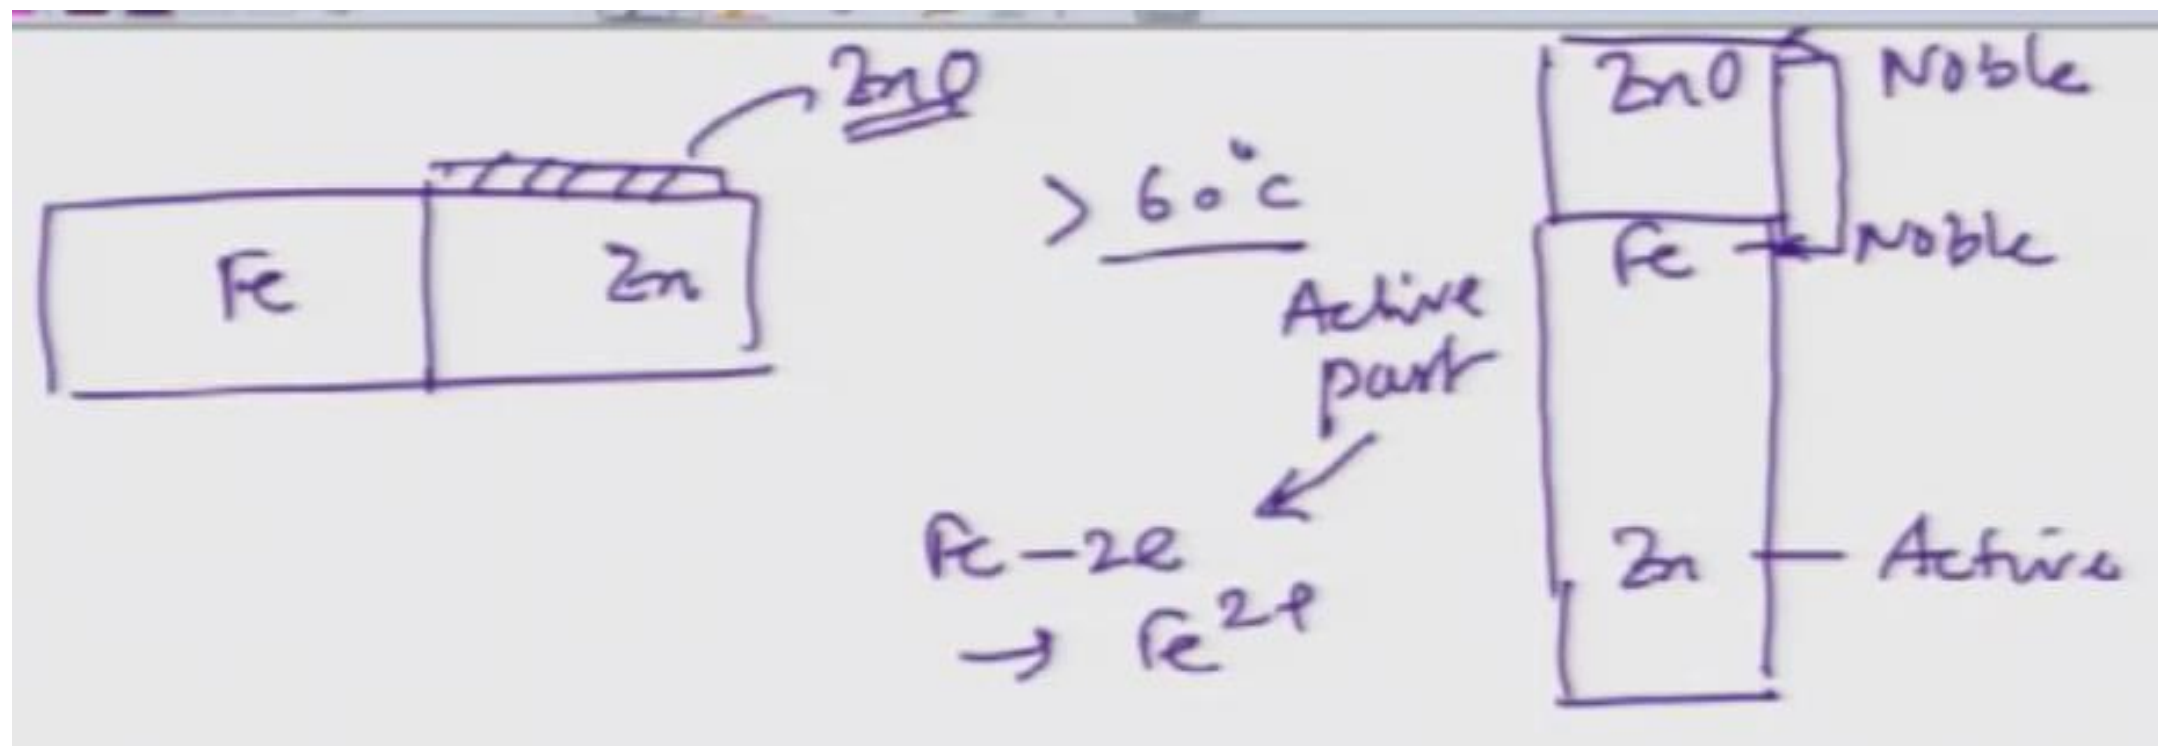 ZnO
Fe
Zn
> 60°C
Active
part
Fe - 2e
→ Fe²⁺
ZnO
Noble
Fe
Noble
Zn
Active